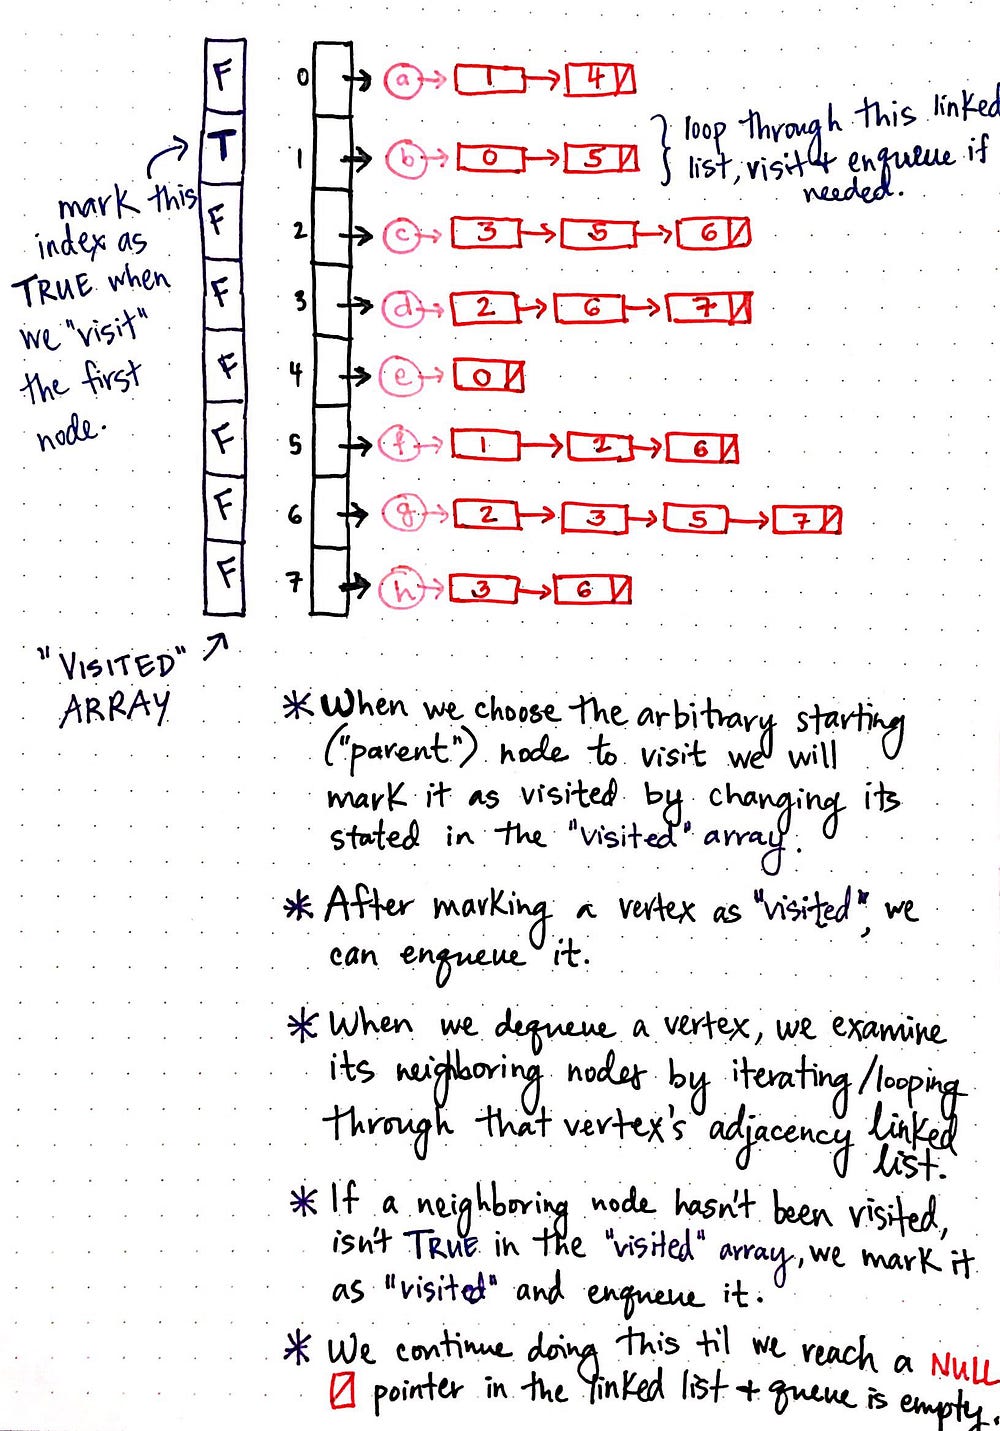 F
T
F
F
F
F
F
F
0 a 1 4
1 b 0 5
2 c 3 5 6
3 d 2 6 7
4 e 0
5 f 1 2 6
6 g 2 3 5 7
7 h 3 6
loop through this linked
list, visit + enqueue if
needed.
mark this
index as
TRUE when
we "visit"
the first
node.
"VISITED"
ARRAY
* When we choose the arbitrary starting
("parent") node to visit we will
mark it as visited by changing its
stated in the "visited" array.
* After marking a vertex as "visited", we
can enqueue it.
* When we dequeue a vertex, we examine
its neighboring nodes by iterating/looping
through that vertex's adjacency linked
list.
* If a neighboring node hasn't been visited,
isn't TRUE in the "visited" array, we mark it
as "visited" and enqueue it.
* We continue doing this til we reach a NULL
pointer in the linked list + queue is empty.